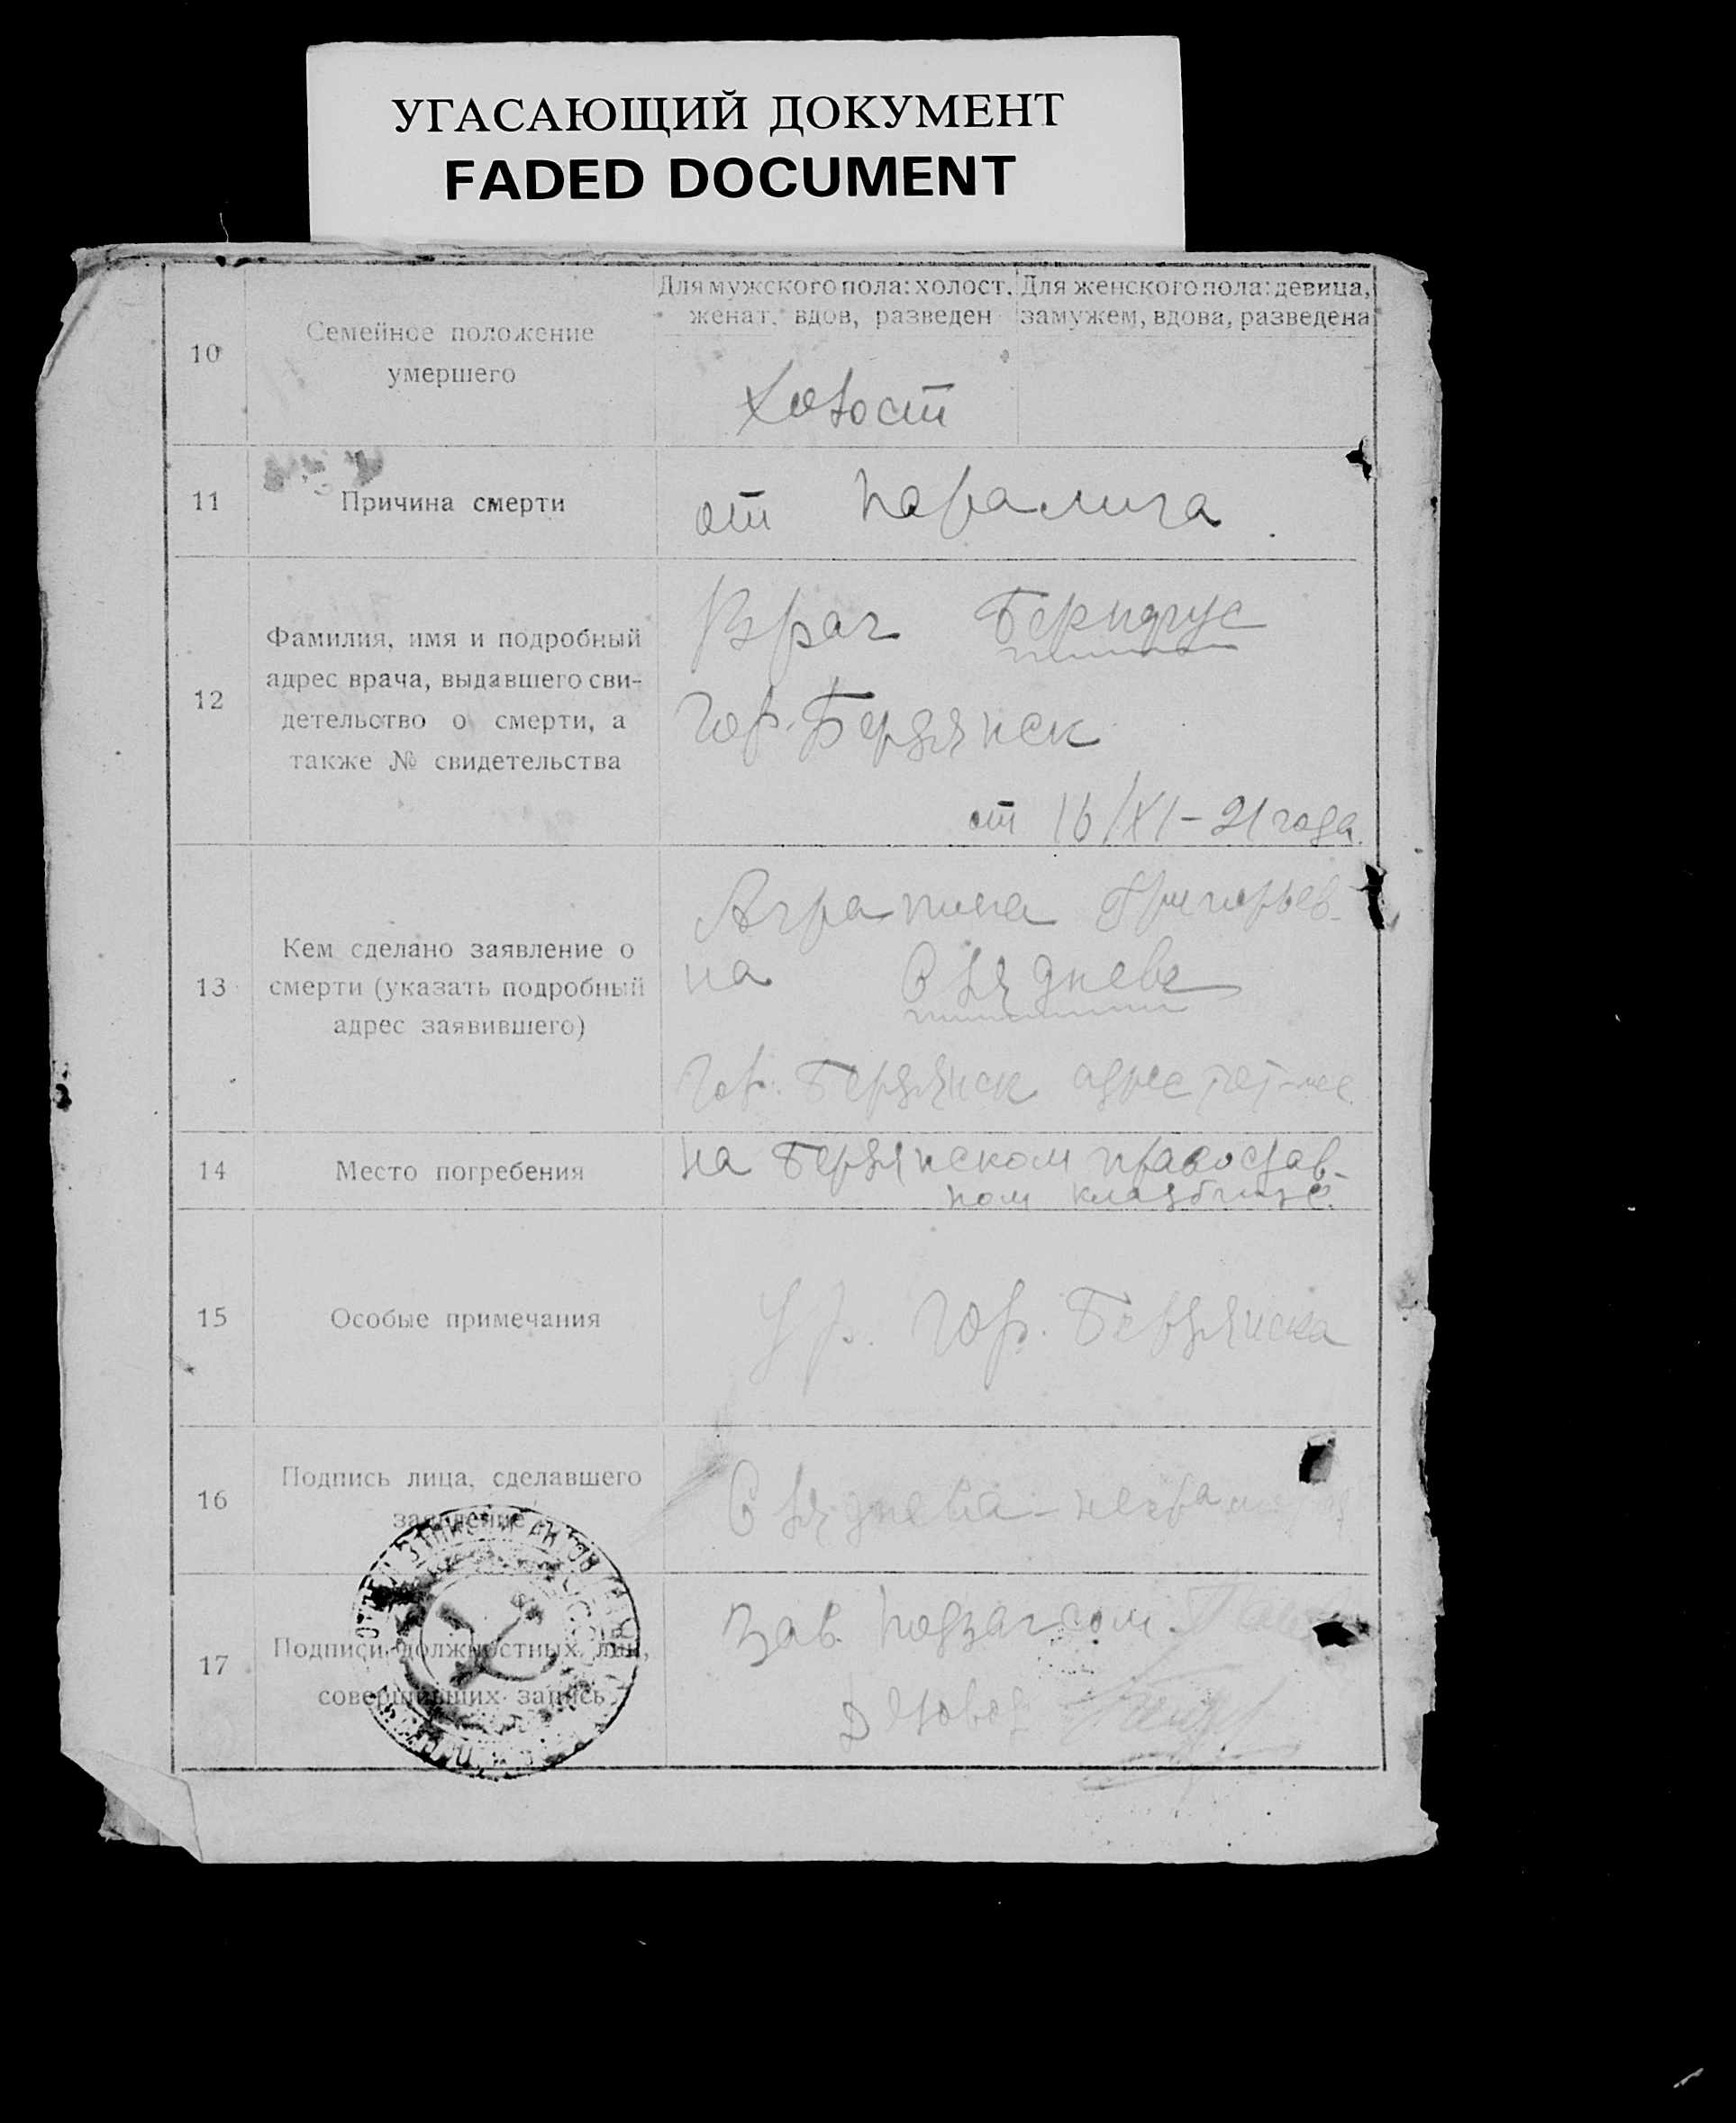 УГАСАЮЩИЙ ДОКУМЕНТ
FADED DOCUMENT
10
Семейное положение
умершего
Для мужского пола: холост,
женат, вдов, разведен
Для женского пола: девица,
замужем, вдова, разведена
Холост
11
Причина смерти
от паралича
12
Фамилия, имя и подробный
адрес врача, выдавшего сви-
детельство о смерти, а
также № свидетельства
Врач
гор. Бердянск
от 16/XI-21 года.
13
Кем сделано заявление о
смерти (указать подробный
адрес заявившего)
Аграпина Григорьев-
на
Гор. Бердянск адрес
14
Место погребения
на Бердянском православ-
ном кладбище.
15
Особые примечания
Ур. гор. Бердянска
16
Подпись лица, сделавшего
заявление
17
Подписи должностных лиц,
совершивших запись
Зав. подзагсом
Деловод